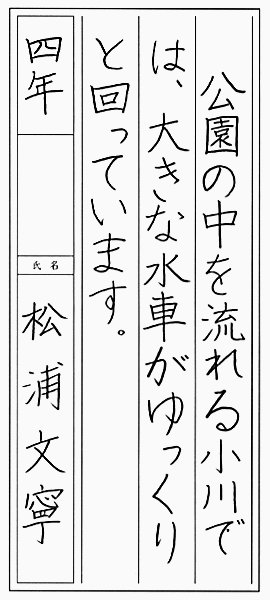 公園の中を流れる小川で
は、大きな水車がゆっくり
と回っています。
四年
氏名
松浦文寧